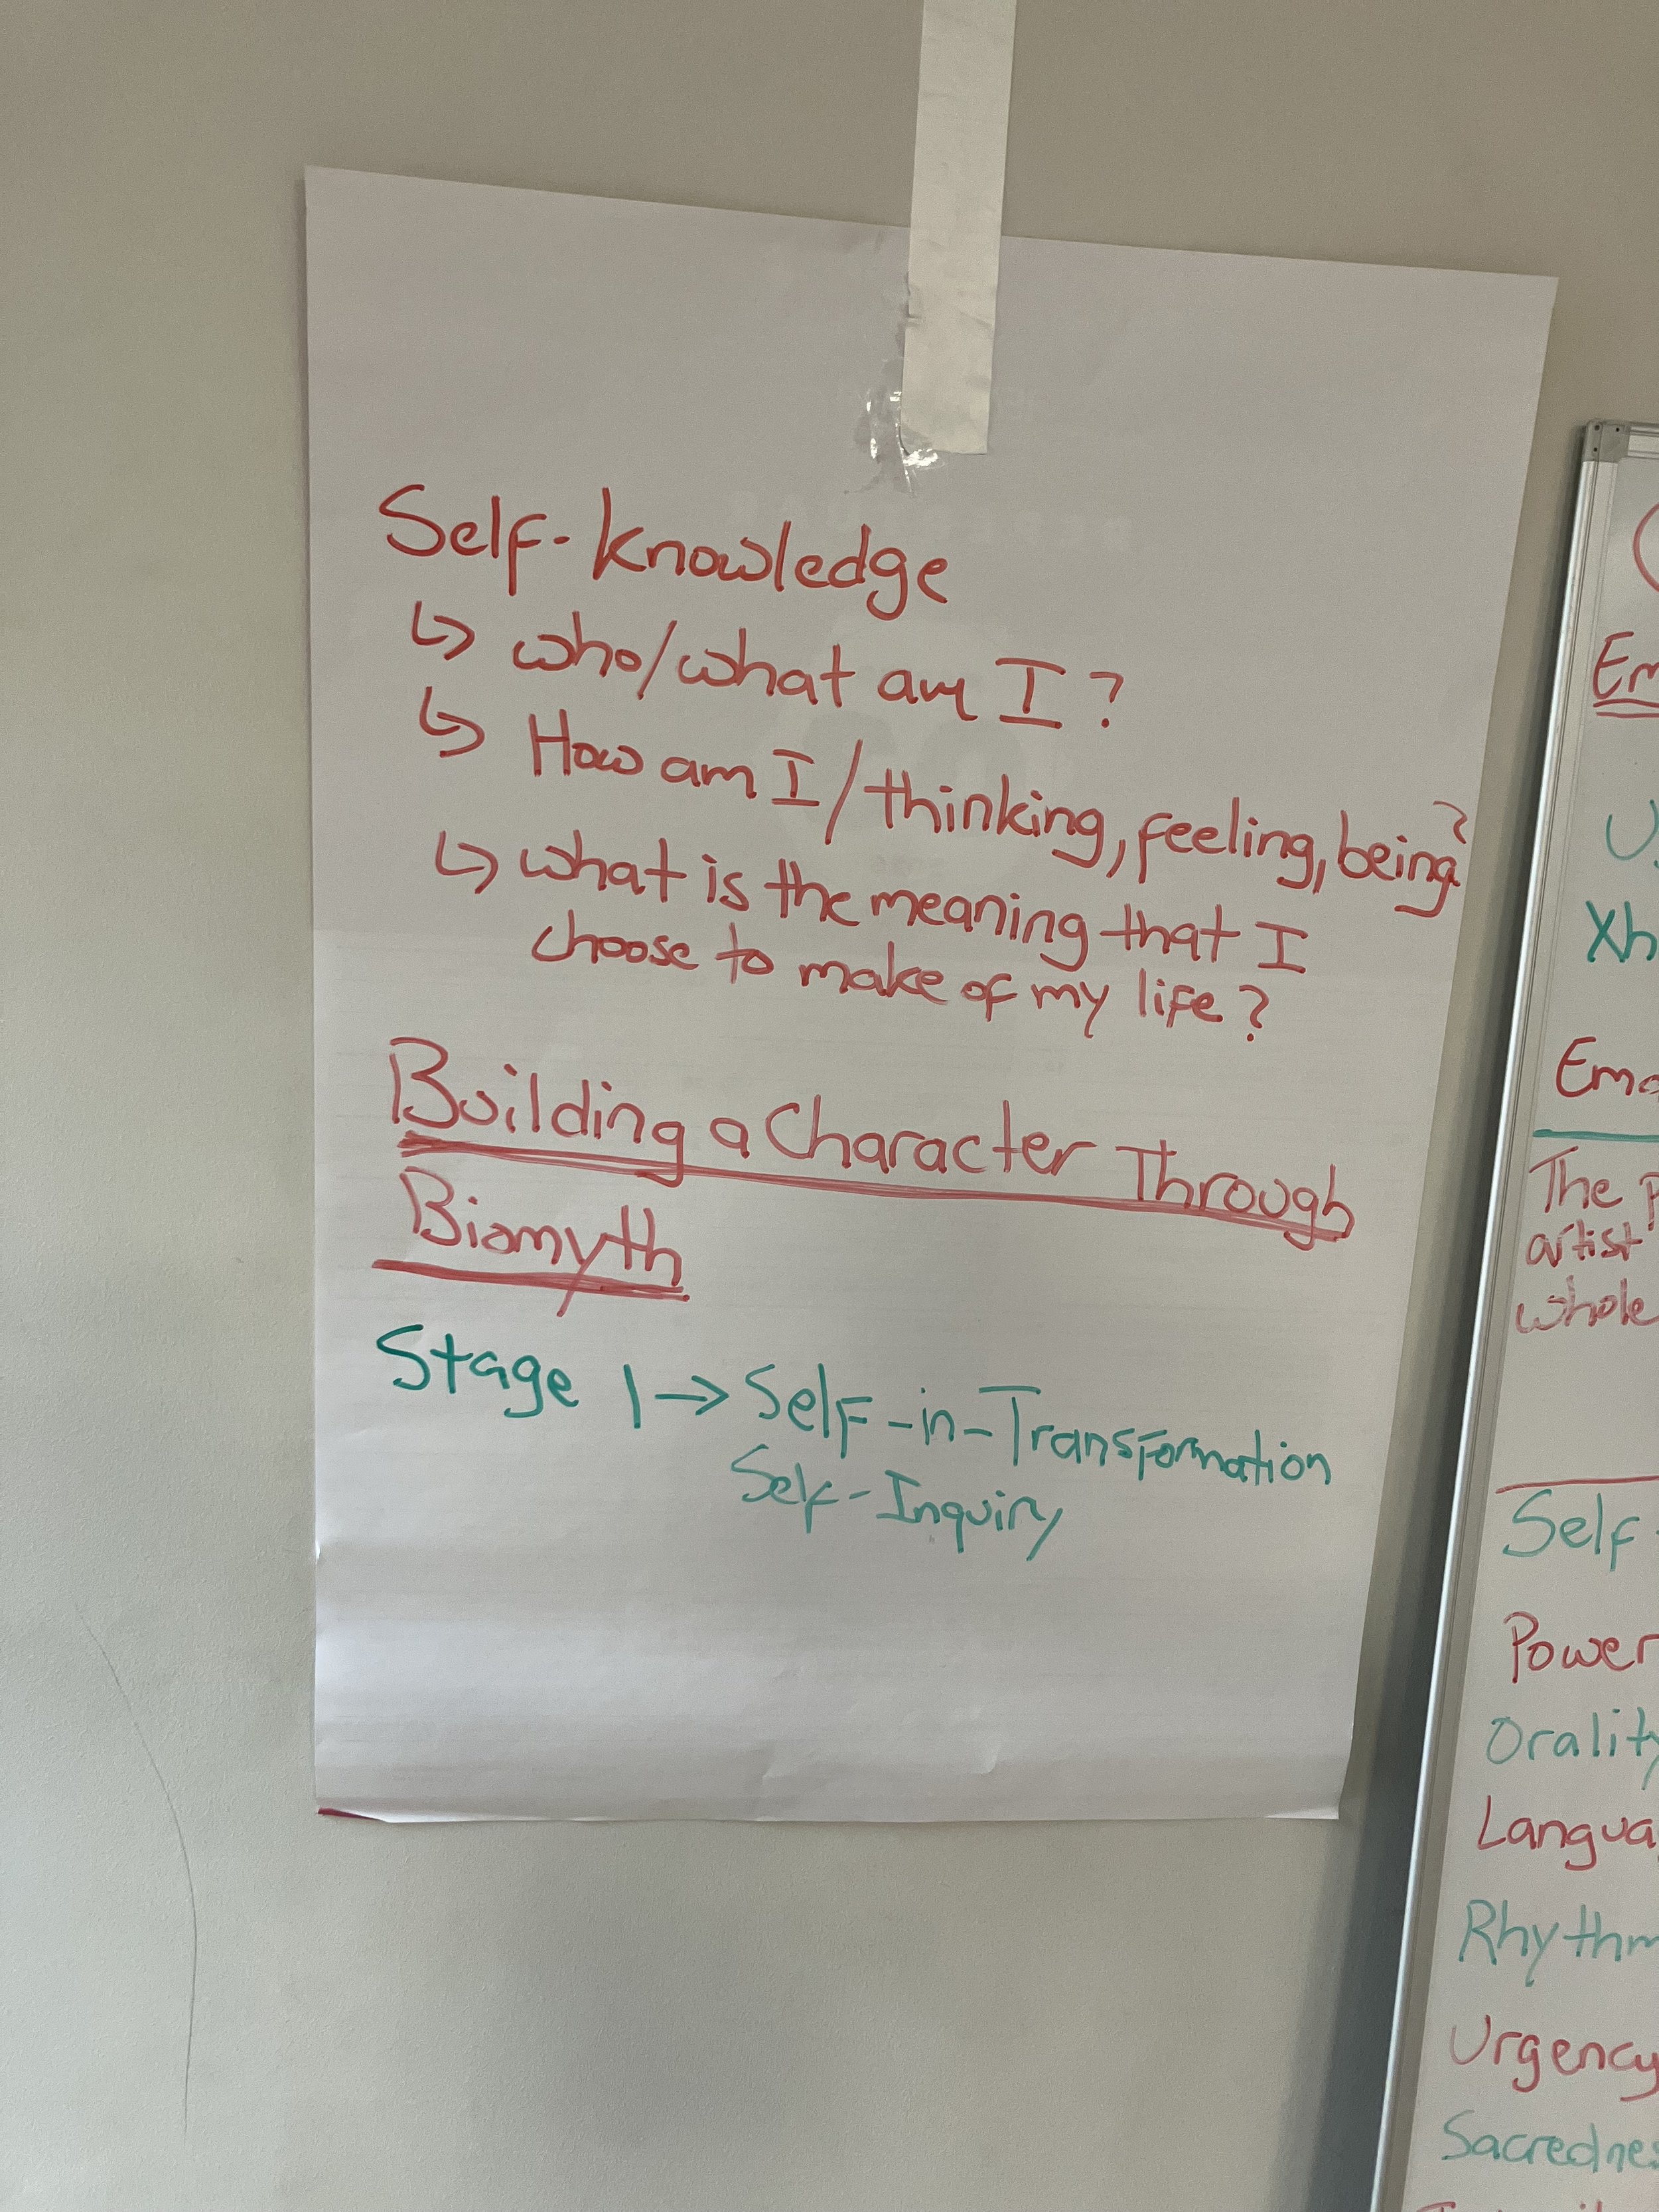 Self-Knowledge
↳ who/what am I?
↳ How am I/thinking, feeling, being?
↳ what is the meaning that I
choose to make of my life?
Building a Character Through
Biomyth
Stage 1 → Self-in-Transformation
Self-Inquiry
Em
Xh
Emo
The
artist
whole
Self
Power
Orality
Langua
Rhythm
Urgency
Sacrednes